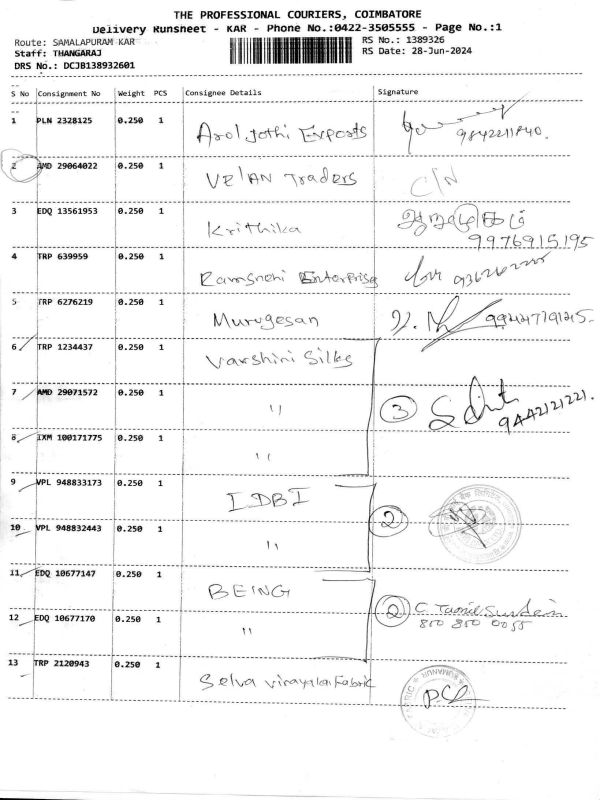 THE PROFESSIONAL COURIERS, COIMBATORE
Delivery Runsheet - KAR - Phone No.:0422-3505555 - Page No.:1
Route: SAMALAPURAM KAR RS No.: 1389326
Staff: THANGARAJ RS Date: 28-Jun-2024
DRS No.: DCJB138932601
S No Consignment No Weight PCS Consignee Details Signature
1 PLN 2328125 0.250 1 Arol Jothi Exports
2 AMD 29064022 0.250 1 VELAN Traders C/N
3 EDQ 13561953 0.250 1 Krithika
9976915195
4 TRP 639959 0.250 1 Ramsnehi Enterprise
5 TRP 6276219 0.250 1 Murugesan
6 TRP 1234437 0.250 1 Varshini Silks
7 AMD 29071572 0.250 1 " 3
9442121221.
8 IXM 100171775 0.250 1 "
9 VPL 948833173 0.250 1 IDBI
2
10 VPL 948832443 0.250 1 "
11 EDQ 10677147 0.250 1 BEING
2
850 850 0055
12 EDQ 10677170 0.250 1 "
13 TRP 2120943 0.250 1 Selva vinayaga Fabric